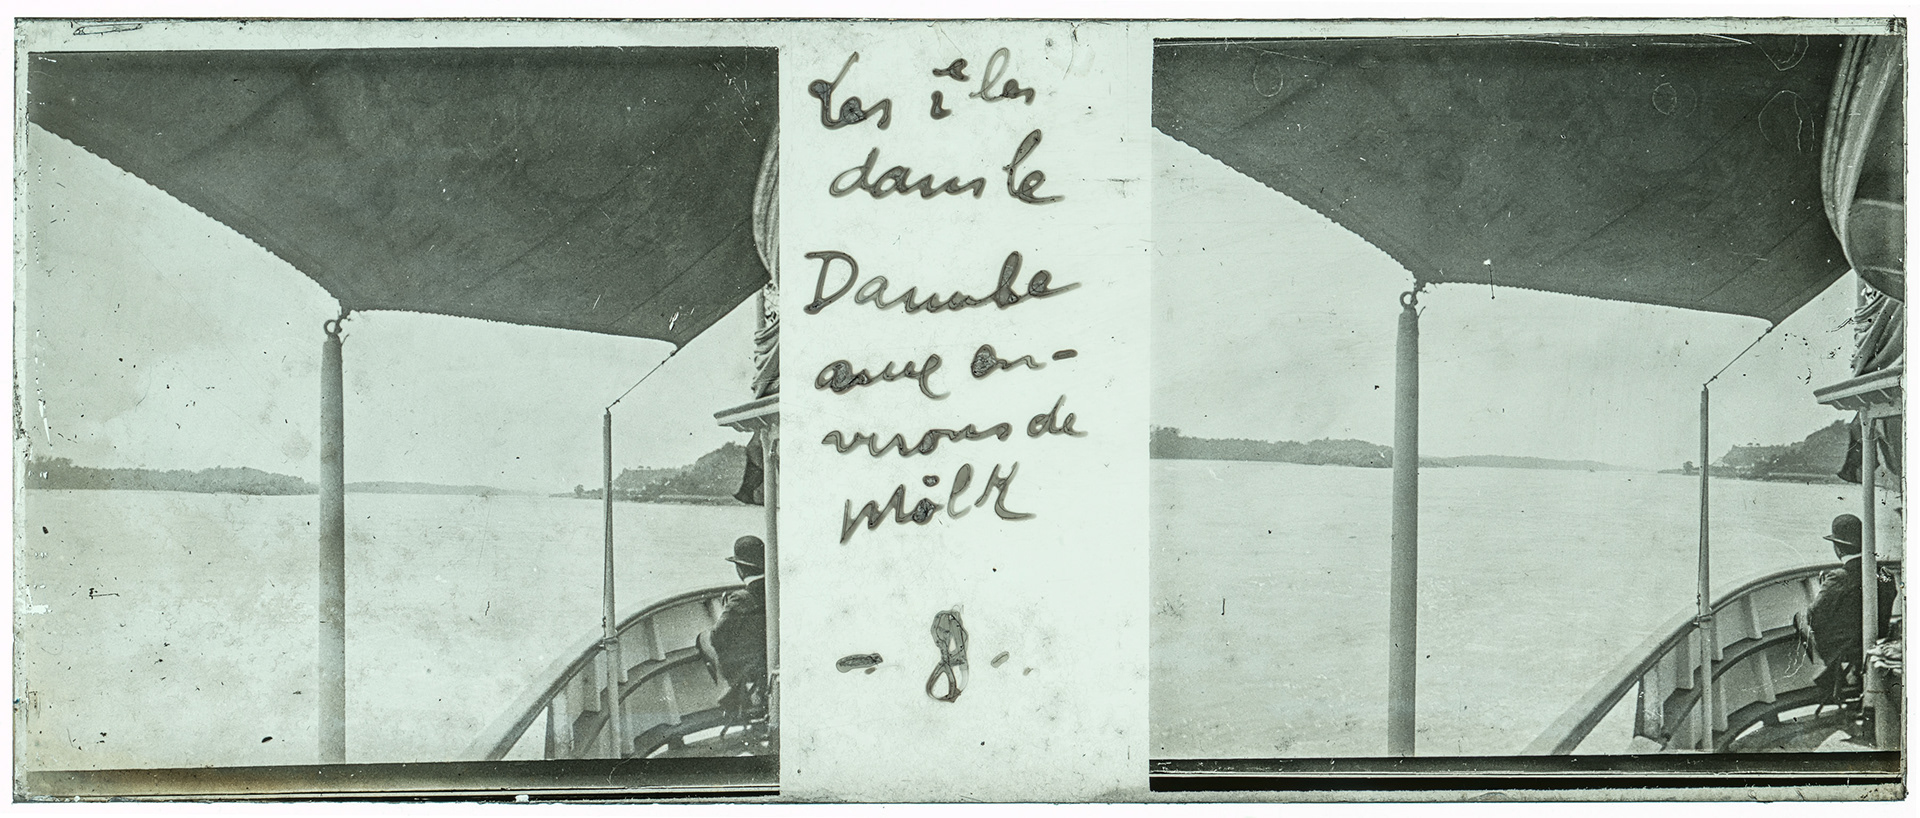 Les îles
dans le
Danube
aux en-
virons de
Mölk
- 8 -